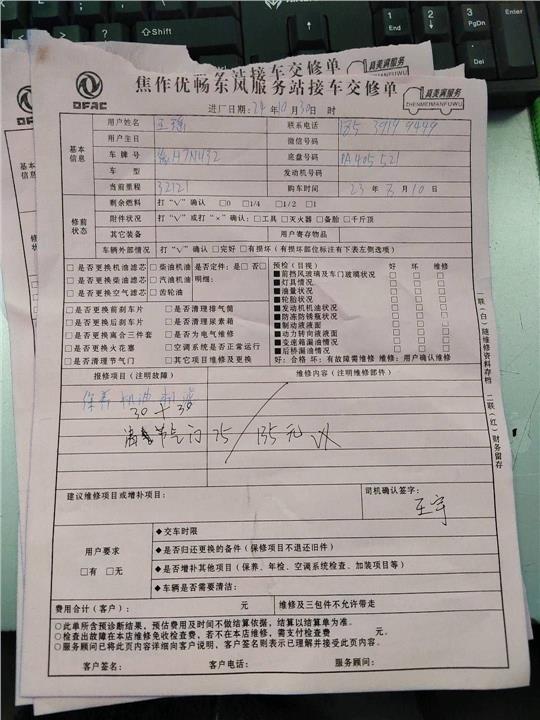 焦作优畅东风服务站接车交修单
DFAC
真美满服务
ZHENMEIMANFUWU
进厂日期:24年10月30日 时
用户姓名 联系电话
用户生日 微信号码
基本信息
车牌号 H7N432 底盘号码 PA405521
车型 发动机号码
当前里程 32121 购车时间 23年 月10日
修前状态
剩余燃料 打"∨"确认 □0 □1/4 □1/2 □1
附件状况 打"∨"或打"×"确认:□工具 □灭火器 □备胎 □千斤顶
其它装备 用户寄存物品
车辆外部情况 打"∨"确认 □完好 □有损坏(有损坏部位标注有下表左侧选项)
□是否更换机油滤芯 □柴油机油 是否定件:是□ 否□
□是否更换柴油滤芯 □汽油机油 明细:
□是否更换空气滤芯 □齿轮油
预检(目视) 好 坏 维修
■前挡风玻璃及车门玻璃状况 □ □ □
■灯具情况 □ □ □
■油量状况 □ □ □
■轮胎状况 □ □ □
■发动机机油状况 □ □ □
■防冻防锈瓶状况 □ □ □
■制动液液面 □ □ □
■动力转向液液面 □ □ □
■变速箱漏油情况 □ □ □
■后桥漏油情况 □ □ □
好:合格 坏:有故障需维修 维修:用户确认维修
□是否更换前刹车片 □是否清理排气筒
□是否更换后刹车片 □是否清理尿素箱
□是否更换离合三件套 □是否为电气维修
□是否更换火花塞 □空调系统是否正常运行
□是否清理节气门 □其它项目维修及更换
报修项目(注明故障) 维修内容(注明维修部件)
保养 机油 机滤
30+30
清洗节气门 75 135元
建议维修项目或增补项目: 司机确认签字:
王宇
用户要求
□有 □无
◆交车时限
◆是否归还更换的备件(保修项目不退还旧件)
◆是否增补其他项目(保养、年检、空调系统检查、加装项目等)
◆车辆是否需要清洁:
费用合计(客户): 元 维修及三包件不允许带走
○此单所含预诊断结果,预估费用及时间不做结算依据,结算以结算单为准。
○检查出故障在本店维修免收检查费,若不在本店维修,需支付检查费 元。
○服务顾问已将此页内容详细向客户说明,客户签名则表示已理解并接受此页内容。
客户签名: 客户电话: 服务顾问:
一联(白)随维修资料存档 二联(红)财务留存